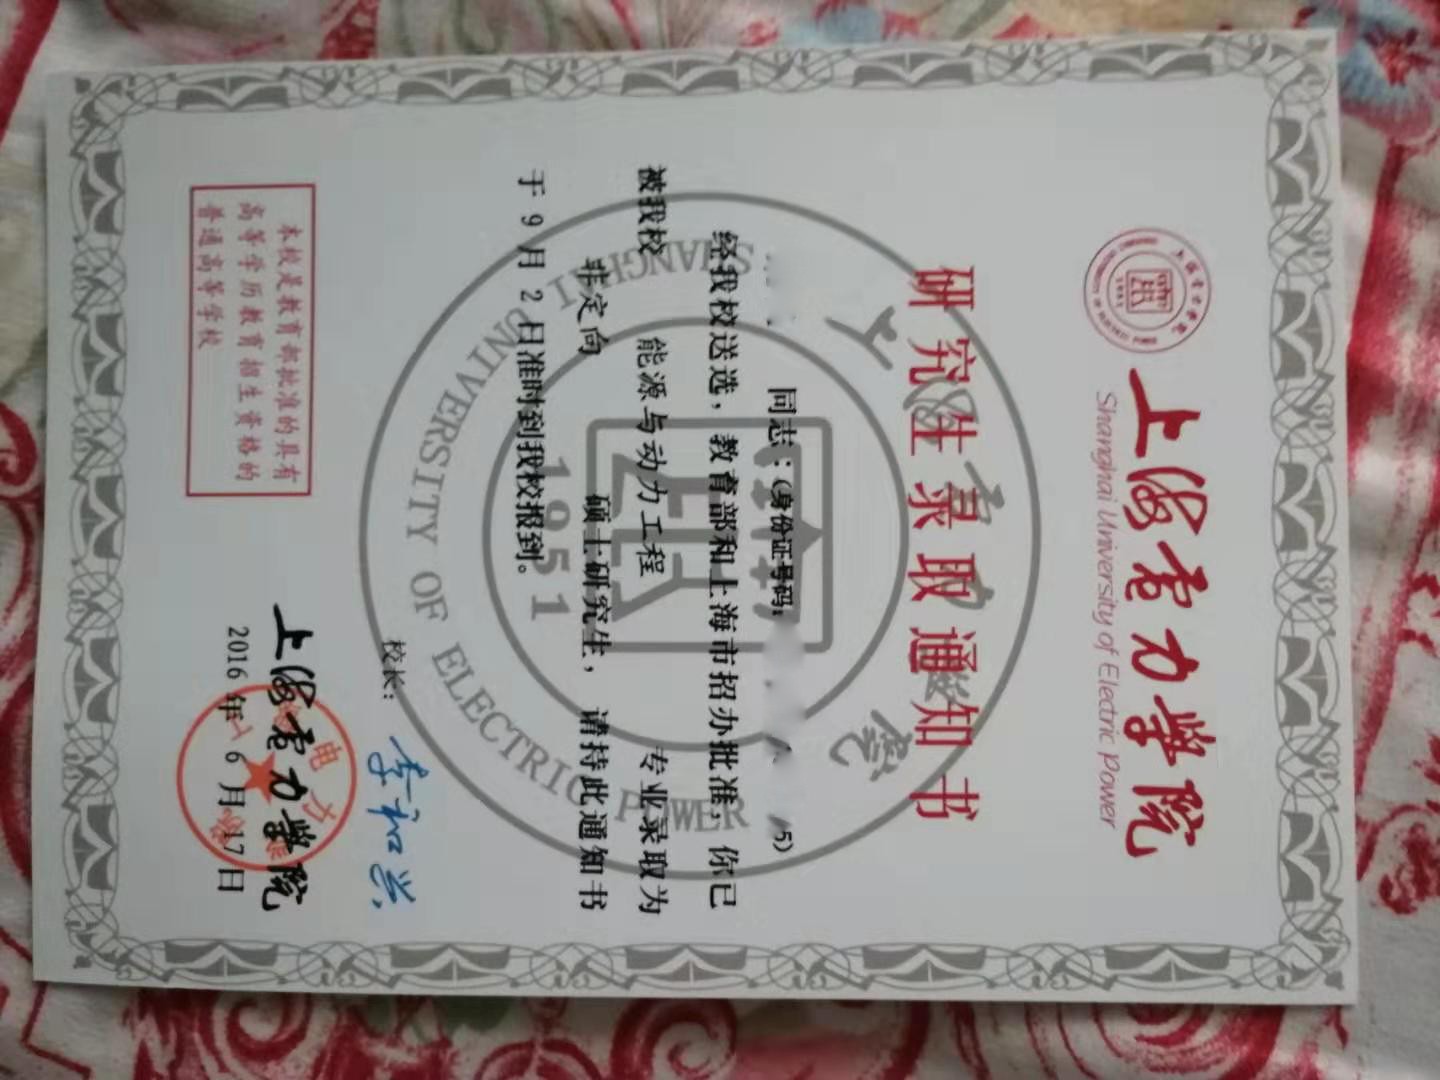 上海电力学院
Shanghai University of Electric Power
研究生录取通知书
同志：(身份证号码:
5)
经我校送选，教育部和上海市招办批准，你已
被我校 能源与动力工程 专业录取为
非定向 硕士研究生，请持此通知书
于 9 月 2 日准时到我校报到。
SHANGHAI UNIVERSITY OF ELECTRIC POWER
1951
校长：李和兴
上海电力学院
2016 年 6 月 17 日
本校是教育部批准的具有
高等学历教育招生资格的
普通高等学校